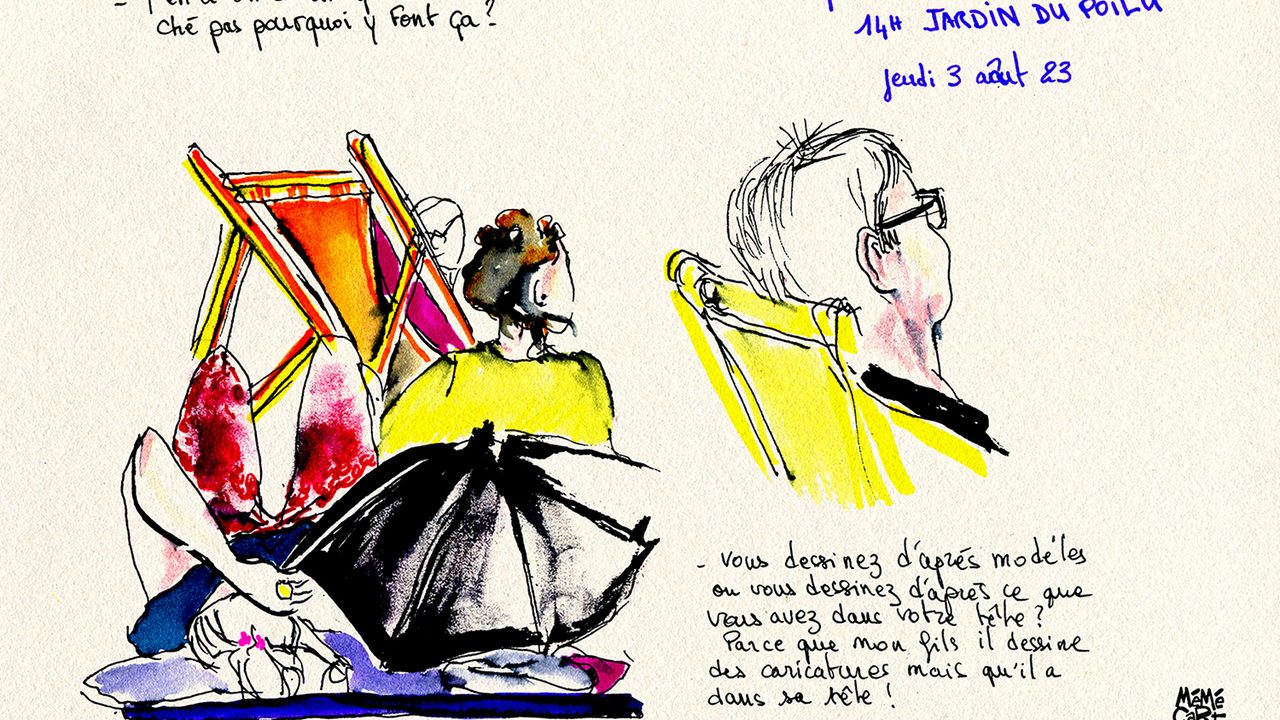 ché pas pourquoi y font ça ?
14H JARDIN DU POILU
jeudi 3 août 23
- Vous dessinez d'après modèles
ou vous dessinez d'après ce que
vous avez dans votre tête ?
Parce que mon fils il dessine
des caricatures mais qu'il a
dans sa tête !
MÉMÉ